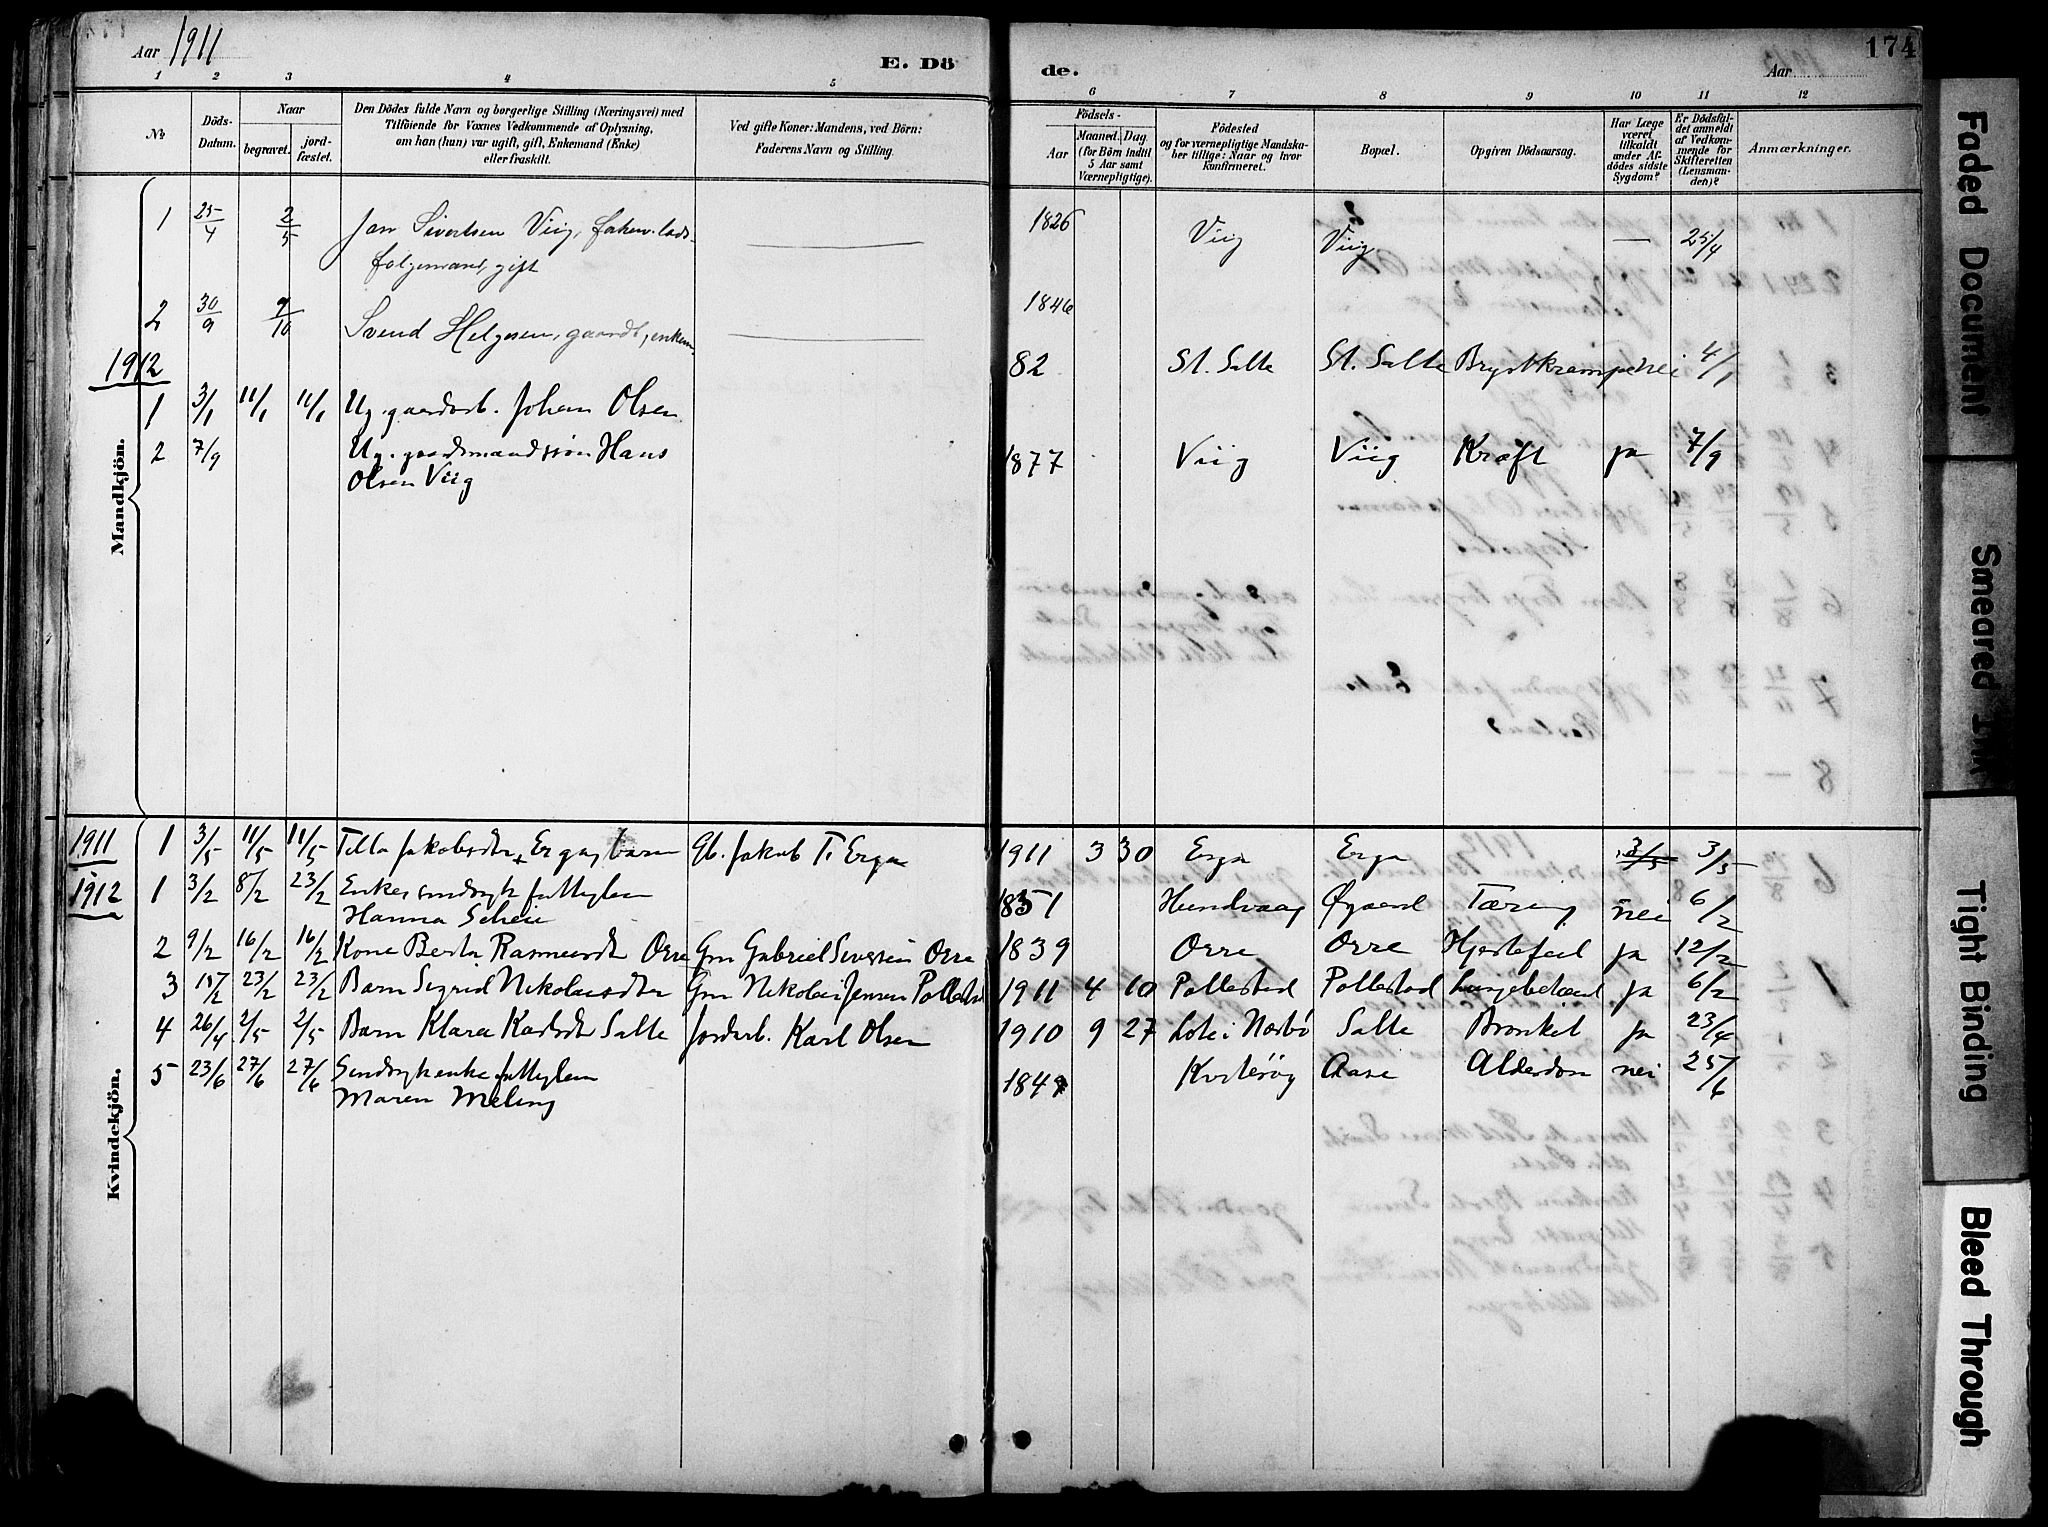 Aar 1911
E. Dö
de.
Aar
174
1 2 3 4 5 6 7 8 9 10 11 12
No
Döds-
Datum.
Naar
begravet.
jord-
fæstet.
Den Dödes fulde Navn og borgerlige Stilling (Næringsvei) med
Tilföiende for Voxnes Vedkommende af Oplysning,
om han (hun) var ugift, gift, Enkemand (Enke)
eller fraskilt.
Ved gifte Koner: Mandens, ved Börn:
Faderens Navn og Stilling.
Födsels-
Aar
Maaned. Dag.
(for Börn indtil
5 Aar samt
Værnepligtige).
Födested
og for værnepligtige Mandska-
ber tillige: Naar og hvor
konfirmeret.
Bopæl.
Opgiven Dödsaarsag.
Har Læge
været
tilkaldt
under Af-
dödes sidste
Sygdom?
Er Dödsfal-
det anmeldt
af Vedkom-
mende for
Skifteretten
(Lensman-
den)?
Anmærkninger.
Mandkjön.
1 25/4 2/5 Jan Sivertsen Viig, 1826 Viig Viig — 25/4
folgemand, gift
2 30/9 9/10 Svend Helgesen, gaardb, enkem. 1846
1912
1 3/1 11/1 11/1 Ug. gaardarb. Johan Olsen 82 St. Salte St. Salte Brystkrampe nei 4/1
2 7/9 Ug. gaardmandssøn Hans 1877 Viig Viig Kræft ja 7/9
Olsen Viig
Kvindekjön.
1911 1 3/5 11/5 11/5 Tilla Jakobsdtr Erga, barn Gb. Jakob T. Erga 1911 3 30 Erga Erga 3/5 3/5
1912 1 3/2 8/2 23/2 Enke sindssyk fattiglem 1851 Hundvaag Øgaard Tæring nei 6/2
Hanna Scheie
2 9/2 16/2 16/2 Kone Berta Rasmusdt Orre Gm Gabriel Sivertsen Orre 1839 Orre Orre Hjertefeil ja 12/2
3 15/2 23/2 23/2 Barn Sigrid Nikolaisdtr Gm Nikolai Jensen Pollestad 1911 4 10 Pollestad Pollestad Lungebetænd ja 6/2
4 26/4 2/5 2/5 Barn Klara Karlsdt Salte Jordarb. Karl Olsen 1910 9 27 Lote i Nærbø Salte Bronkit ja 23/4
5 23/6 27/6 27/6 Sindsyk enke fattiglem Aase Alderdom nei 25/6
Maren Meling
Faded Document
Smeared Ink
Tight Binding
Bleed Through